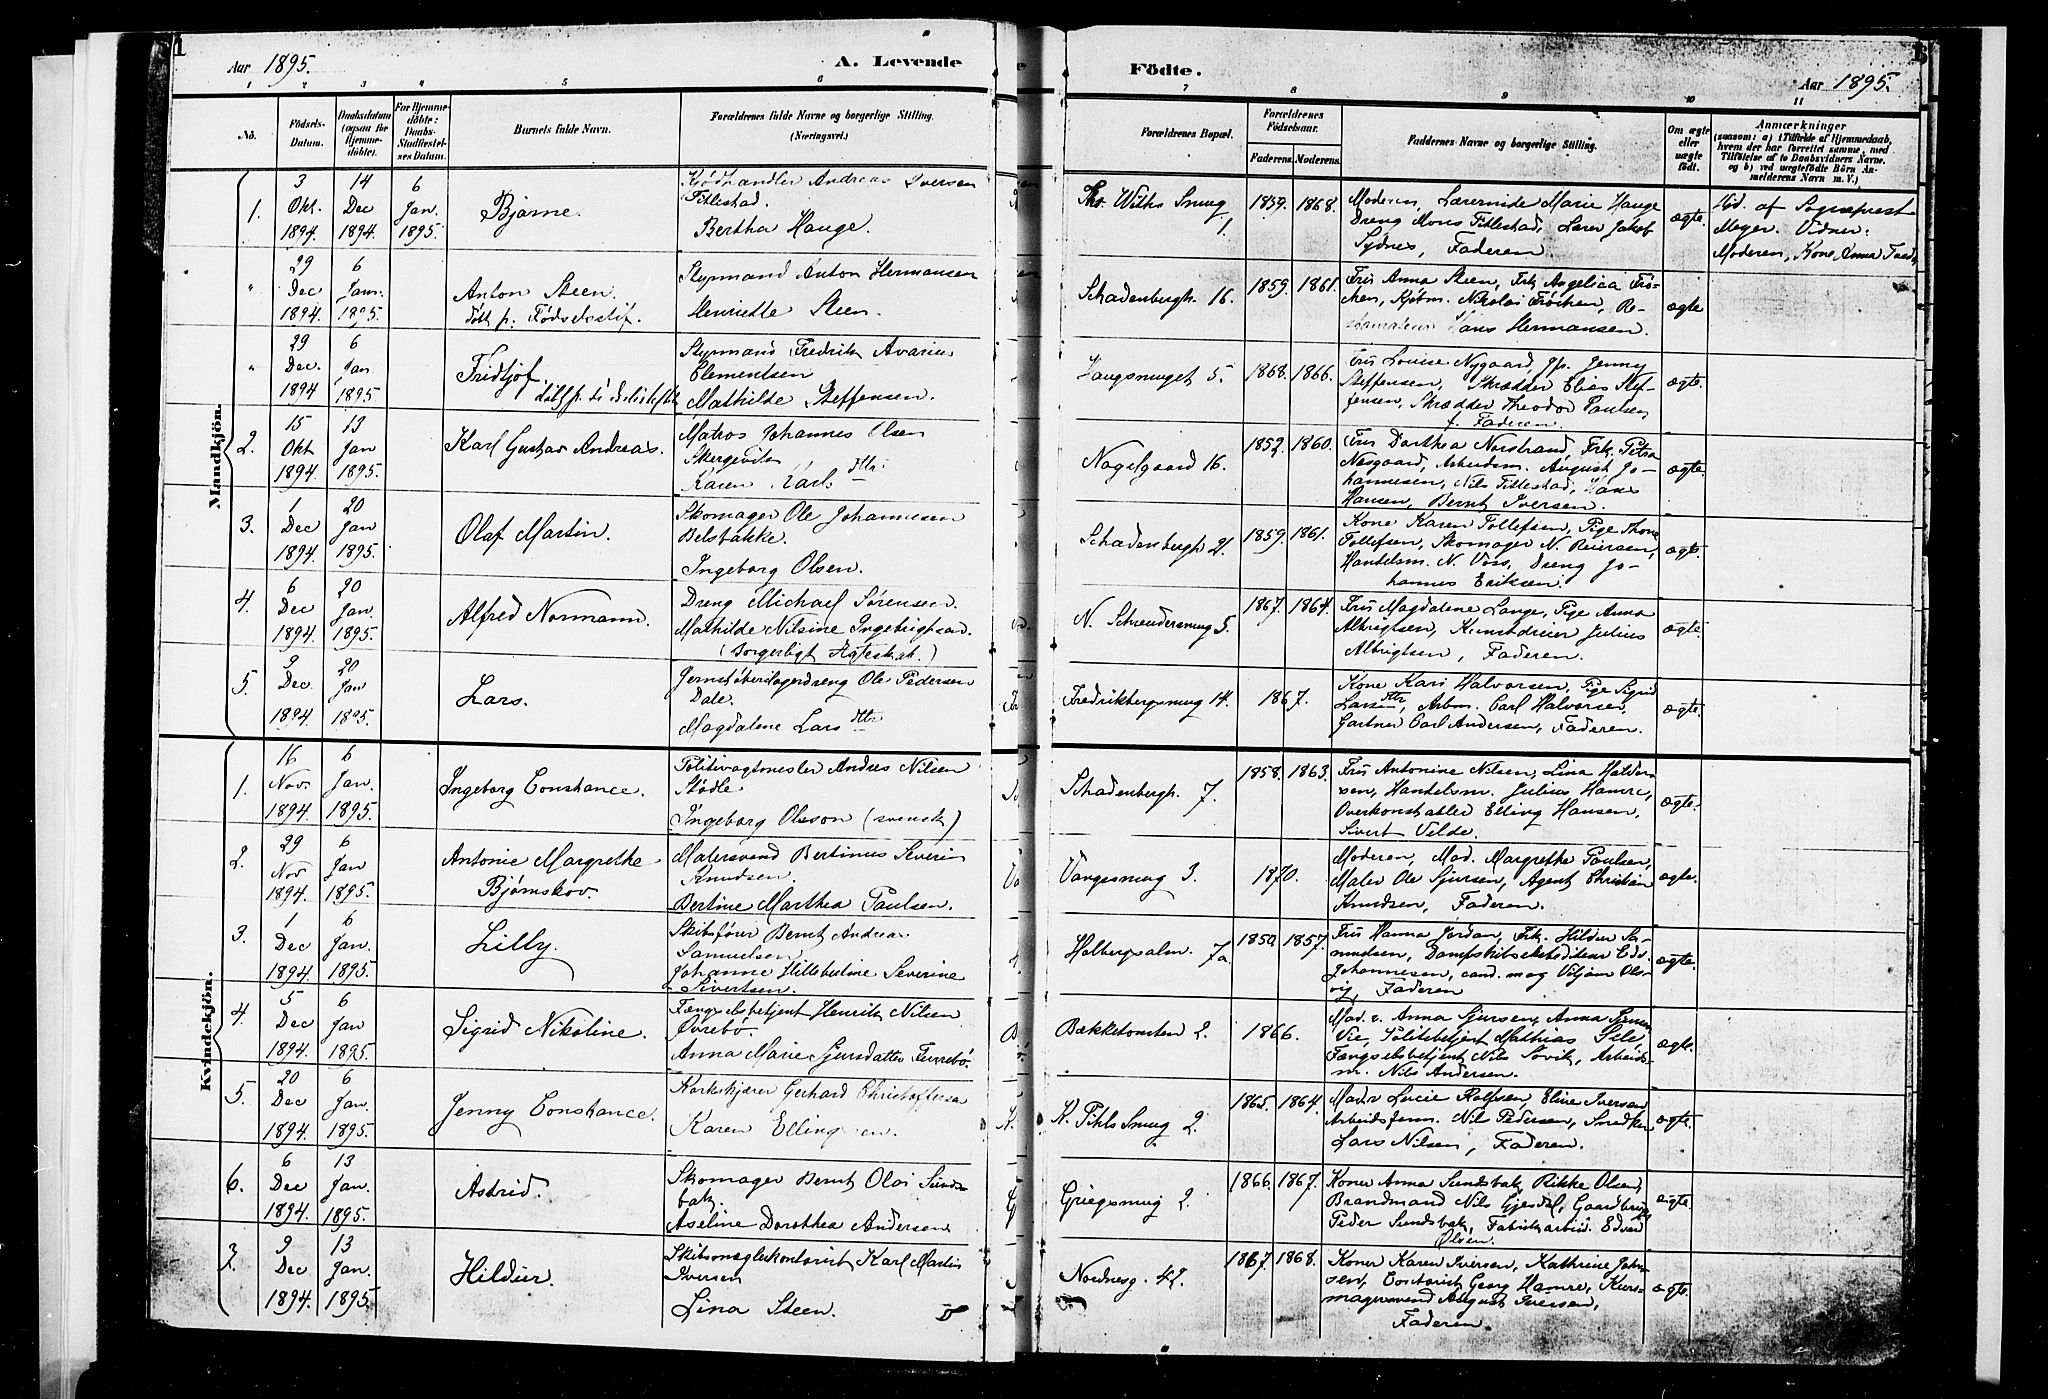 1
Aar 1895.
A. Levende
Födte.
Aar 1895.
1 2 3 4 5 6 7 8 9 10 11
No.
Födsels-
Datum.
Daabsdatum
(ogsaa for
Hjemme-
döbte).
For Hjemme-
döbte:
Daabs-
Stadfæstel-
ses Datum.
Barnets fulde Navn.
Forældrenes fulde Navne og borgerlige Stilling.
(Næringsvei.)
Forældrenes Bopæl.
Forældrenes
Födselsaar.
Faderens. Moderens.
Faddernes Navne og borgerlige Stilling.
Om ægte
eller
uægte
födt.
Anmærkninger
(saasom: a) i Tilfælde af Hjemmedaab,
hvem der har forrettet samme, med
Tilföielse af to Daabsvidners Navne,
og b) ved uægtefödte Börn An-
melderens Navn m. V.)
Mandkjön.
1.
3
Okt.
1894.
14
Dec
1894.
6
Jan.
1895.
Bjarne.
Kjødhandler Andreas Iversen
Fitlestad.
Bertha Hauge.
Wilhs Smug
1.
1859. 1868.
Moderen, Lærerinde Marie Hauge
Dreng Mons Fitlestad, Lærer Jakob
Sydnes, Faderen.
ægte.
Hjd. af Sogneprest
Meyer. Vidner:
Moderen, Kone Anna
"
29
Dec
1894.
6
Jan.
1895.
Anton Steen.
født p. Fødselsstif.
Styrmand Anton Hermansen
Henriette Steen.
Schadenbergh. 16.
1859. 1861.
Fru Anna Steen, Frk Angelica Frö-
chen, Kjøbm. Nikolai Fröchen, Re-
Hans Hermansen.
ægte
"
29
Dec.
1894
6
Jan
1895
Fridtjof.
Styrmand Fredrik Avarius
Clementsen
Mathilde Steffensen.
Haugsmuget 5.
1868. 1866.
Fru Louise Nygaard, Jenny
Steffensen, Skrædder Elias Stef-
fensen, Skrædder Theodor Paulsen,
f. Faderen.
ægte.
2.
15
Okt
1894
13
Jan
1895.
Karl Gustav Andreas.
Matros Johannes Olsen
Skergevik
Karen Karls dttr
Nagelgaard 16.
1852. 1860.
Fru Dorthea Norstrand, Frk. Petra
Næsgaard, Arbeidsm. August Jo-
hannesen, Nils Fitlestad, Hans
Hansen, Bernt Iversen.
ægte.
3.
1
Dec
1894.
20
Jan
1895.
Olaf Martin.
Skomager Ole Johannesen
Belsbakke.
Ingeborg Olsen.
Schadenbergh 2.
1859. 1861.
Kone Karen Tollefsen, Pige Thone
Tollefsen, Skomager N. Reiersen,
Handelsm. N. Voss, Dreng Jo-
hannes Eriksen.
ægte.
4.
6
Dec
1894.
20
Jan.
1895.
Alfred Normann.
Dreng Michael Sørensen.
Mathilde Nilsine Ingebrigtsen.
(Borgerligt Ægteskab.)
N. Schreudersmug 5.
1867. 1864.
Fru Magdalene Lange, Pige Anna
Albrigtsen, Kunstdreier Julius
Albrigtsen, Faderen.
ægte.
5.
9
Dec.
1894.
20
Jan
1895.
Lars.
Jernstøberilagerdreng Ole Pedersen
Dale.
Magdalene Lars dttr
Fredrikbergsmug 14.
1867.
Kone Kari Halvorsen, Pige Sigrid
Lars dttr, Arbm. Carl Halvorsen,
Gartner Carl Andersen, Faderen.
ægte.
Kvindekjön.
1.
16
Nov.
1894
6
Jan.
1895.
Ingeborg Constance.
Politivagtmester Andres Nilsen
Stødle
Ingeborg Olsson (svensk)
Schadenbergh. 7.
1858. 1863.
Fru Antonine Nilsen, Lina Haldor-
sen, Handelsm. Julius Hamre,
Overkonstabler Elling Hansen,
Sivert Velde.
ægte.
2.
29
Nov
1894.
6
Jan
1895.
Antonie Margrethe
Bjørnskov.
Malersvend Bertinus Severin
Knudsen.
Bertine Marthea Paulsen.
Vangesmug 3.
1870.
Moderen, Mad. Margrethe Paulsen,
Maler Ole Sjursen, Agent Christian
Knudsen, Faderen.
ægte.
3.
1
Dec
1894.
6
Jan.
1895.
Lilly.
Skibsfører Bernt Andreas
Samuelsen.
Johanne Hillebertine Severine
Sivertsen.
Holbergsalm. 7a.
1850 1857.
Fru Hanna Jordan, Frk. Hildur Sa-
muelsen, Dampskibsekspeditør Edv.
Johannesen, cand. mag Viljam Ols-
vig, Faderen
ægte.
4.
5
Dec
1894.
6
Jan
1895.
Sigrid Nikoline.
Fængselsbetjent Henrik Nilsen
Øvrebø.
Anna Marie Sjursdatter Furrebø.
Bækketomten 2.
1866.
Mad. Anna Sjursen, Anna
Vie, Politibetjent Mathias Sele,
Fængselsbetjent Nils Søvik, Arbeids-
m. Nils Andersen.
ægte.
5.
20
Dec
1894.
6
Jan.
1895.
Jenny Constance.
Korkskjærer Gerhard Christoffersen
Karen Ellingsen.
K. Pihls Smug 2.
1865. 1864.
Mad. Lucie Rolfsen, Eline Iversen
Arbeidsform. Nils Pedersen, Snedker
Lars Nilsen, Faderen.
ægte.
6.
6
Dec
1894.
13
Jan.
1895.
Astrid.
Skomager Bernt Olai Sunds-
bak.
Aseline Dorothea Andersen
Griegsmug 2.
1866. 1867.
Koner Anna Sundsbak, Rikke Olsen,
Brandmand Nils Gjesdal, Gaardbruger
Peder Sundsbak, Fabrikarbeid. Edvard
Olsen.
ægte.
7.
9
Dec
1894.
13
Jan.
1895
Hildur.
Skibsmæglerkontorist Karl Martin
Iversen
Lina Steen.
Nordnesg. 42.
1867. 1868.
Koner Karen Iversen, Kathrine John-
sen, Contorist Georg Hamre, Kurv-
magersvend August Iversen,
Faderen.
ægte.